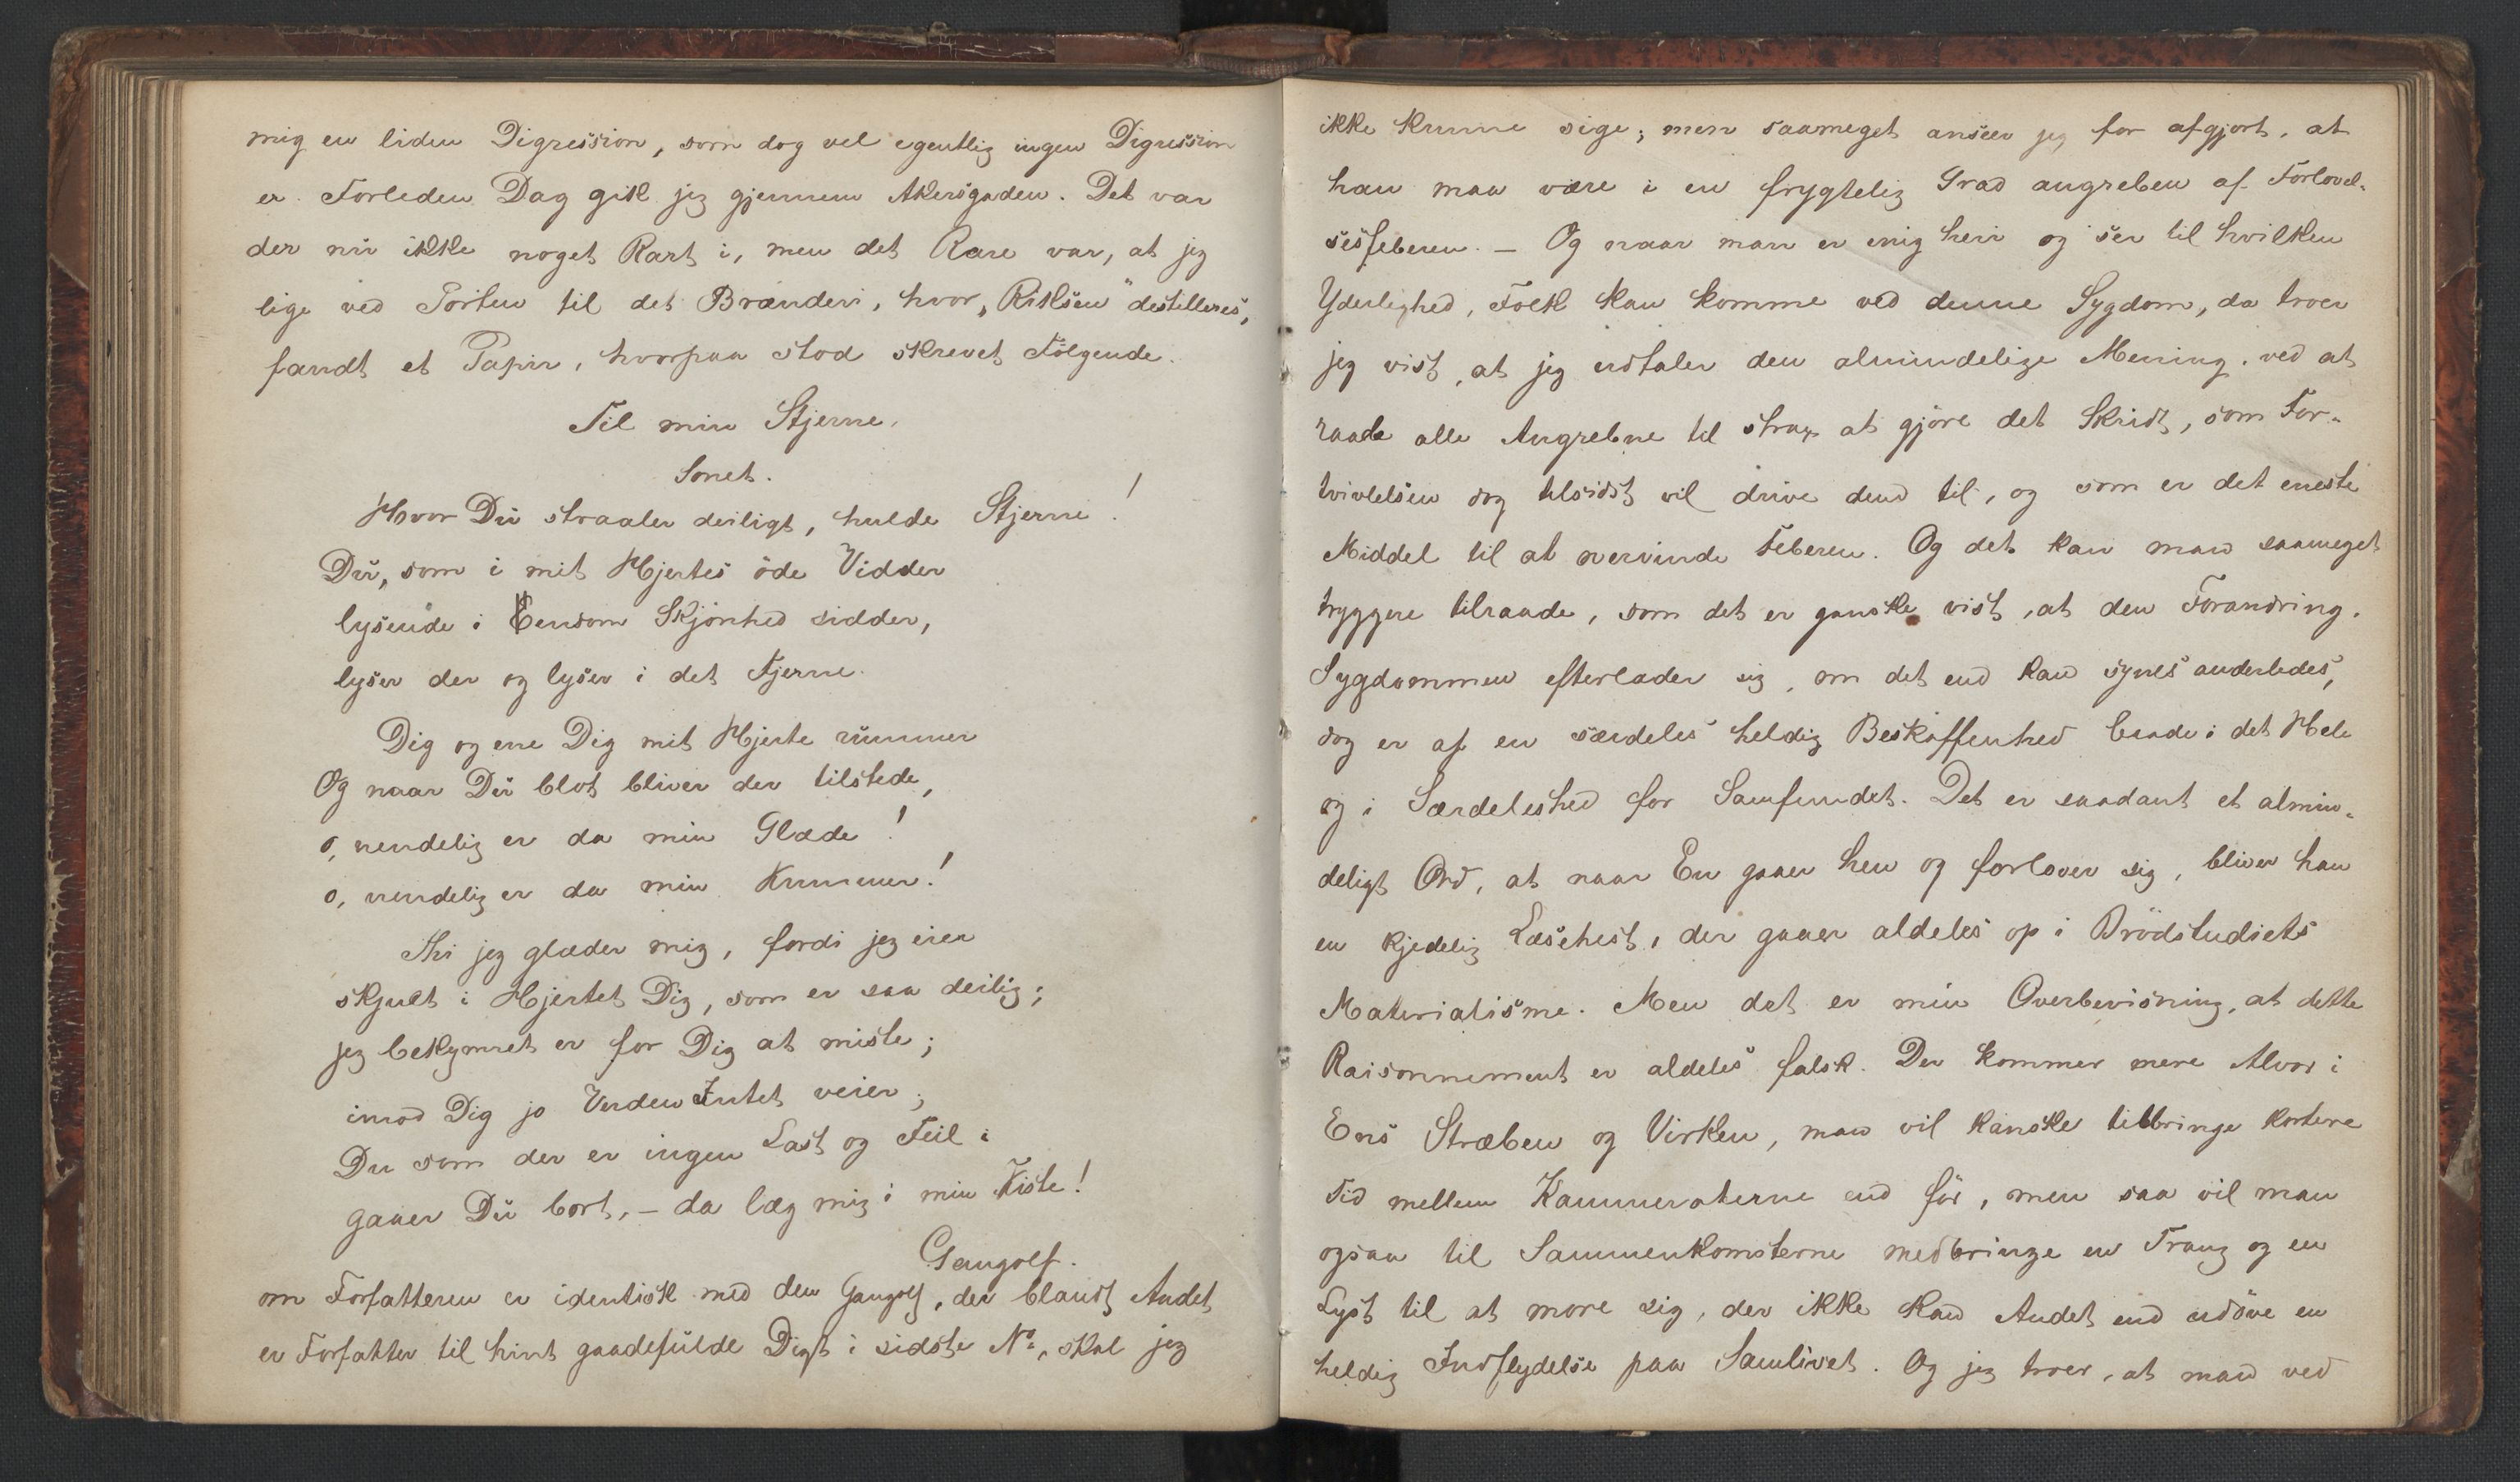 mig en liden Digression, som dog vel egentlig ingen Digression
er. Forleden Dag gik jeg gjennem Akersgaden. Det var
der nu ikke noget Rart i, men det Rare var, at jeg
lige ved Porten til det Brænderi, hvor „Riksen" destilleres,
fandt et Papir, hvorpaa stod skrevet Følgende.
Til min Stjerne.
Sonet.
Hvor Du straaler deiligt, hulde Stjerne!
Du, som i mit Hjertes öde Vidder
lysende i Eensom Skjönhed sidder,
lyser der og lyser i det Fjerne.
Dig og ene Dig mit Hjerte rummer
Og naar Du blot bliver der tilstede,
o, uendelig er da min Glæde!
o, uendelig er da min Kummer!
Thi jeg glæder mig, fordi jeg eier
skjult i Hjertet Dig, som er saa deilig;
jeg bekymret er for Dig at miste;
imod Dig jo Verden Intet veier;
Du som der er ingen Last og Feil i
gaaer Du bort, – da læg mig i min Kiste!
Gangolf.
om Forfatteren er identisk med den Gangolf, der blandt Andet
er Forfatter til hint gaadefulde Digt i sidste No, skal jeg
ikke kunne sige; men saameget anseer jeg for afgjort, at
han maa være i en frygtelig Grad angreben af Forlovel-
sesfeberen. – Og naar man er enig heri og ser til hvilken
Yderlighed, Folk kan komme ved denne Sygdom, da troer
jeg vist, at jeg udtaler den almindelige Mening, ved at
raade alle Angrebne til strax at gjöre det Skridt, som For-
tvivlelsen dog tilsidst vil drive dend til, og som er det eneste
Middel til at overvinde Feberen. Og det kan man saameget
tryggere tilraade, som det er ganske vist, at den Forandring,
Sygdommen efterlader sig, om det end kan synes anderledes,
dog er af en særdeles heldig Beskaffenhed baade i det Hele
og i Særdeleshed for Samfundet. Det er saadant et almin-
deligt Ord, at naar En gaaer hen og forlover sig, bliver han
en kjedelig Læsehest, der gaaer aldeles op i Brödstudiets
Materialisme. Men det er min Overbevisning, at dette
Raisonnement er aldeles falsk. Der kommer mere Alvor i
Ens Stræben og Virken, man vil kanske tilbringe kortere
Tid mellem Kammeraterne end för, men saa vil man
ogsaa til Sammenkomsterne medbringe en Trang og en
Lyst til at more sig, der ikke kan Andet end udöve en
heldig Indflydelse paa Samlivet. Og jeg troer, at man ved